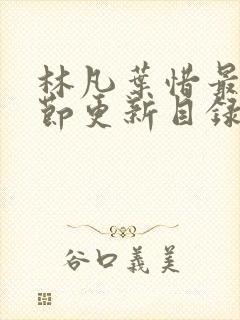 林凡葉惜最
節更新目録
谷口義美